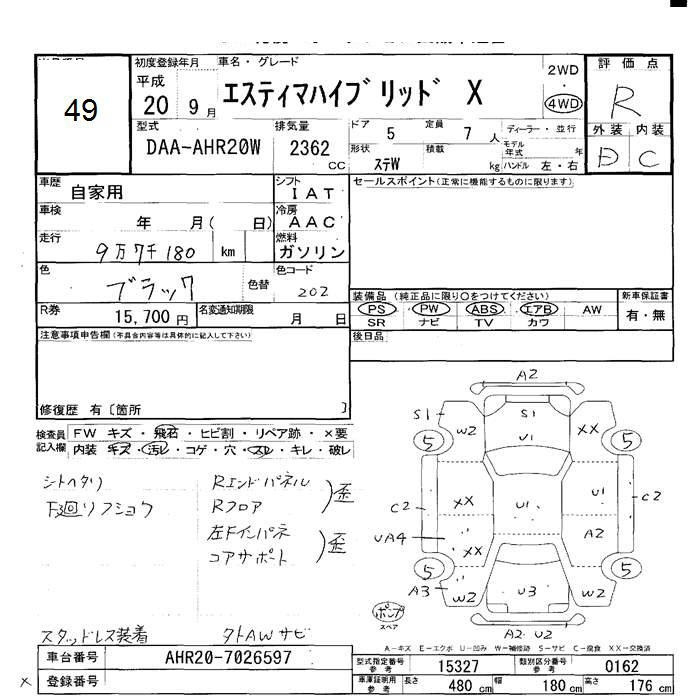 49
初度登録年月
平成
20 9 月
車名・グレード
エスティマハイブリッド X
2WD
4WD
評価点
R
外装 内装
D C
型式
DAA-AHR20W
排気量
2362
cc
ドア 5
定員 7 人
形状 ステW
積載 kg
ディーラー・並行
モデル年式 年
ハンドル 左・右
車歴
自家用
シフト
I A T
セールスポイント(正常に機能するものに限ります)
車検
年 月( 日)
冷房
A A C
走行
9万7千180 km
燃料
ガソリン
色
ブラック
色替
色コード
202
装備品 (純正品に限り○をつけてください)
PS PW ABS エアB AW
SR ナビ TV カワ
新車保証書
有・無
R券
15,700 円
名変通知期限
月 日
注意事項申告欄(不具合内容等は具体的に記入して下さい)
後日品
修復歴 有〔箇所 〕
検査員
記入欄
FW キズ・飛石・ヒビ割・リペア跡・×要
内装 キズ・汚レ・コゲ・穴・スレ・キレ・破レ
シートヘタリ
下廻リフショク
Rエンドパネル
Rフロア
)歪
左Fインパネ
コアサポート
)歪
スタッドレス装着
タトAWサビ
A2
S1
W2
S1
U1
XX
5
5
C2
XX
U1
U1
C2
UA4
XX
A2
5
5
A3
W2
U3
W2
A2 U2
ポンプ
スペア
A-キズ E-エクボ U-凹み W-補修跡 S-サビ C-腐食 XX-交換済
車台番号
AHR20-7026597
型式指定番号
参考
15327
類別区分番号
参考
0162
× 登録番号
車庫証明用
参考
長さ 480 cm
幅 180 cm
高さ 176 cm